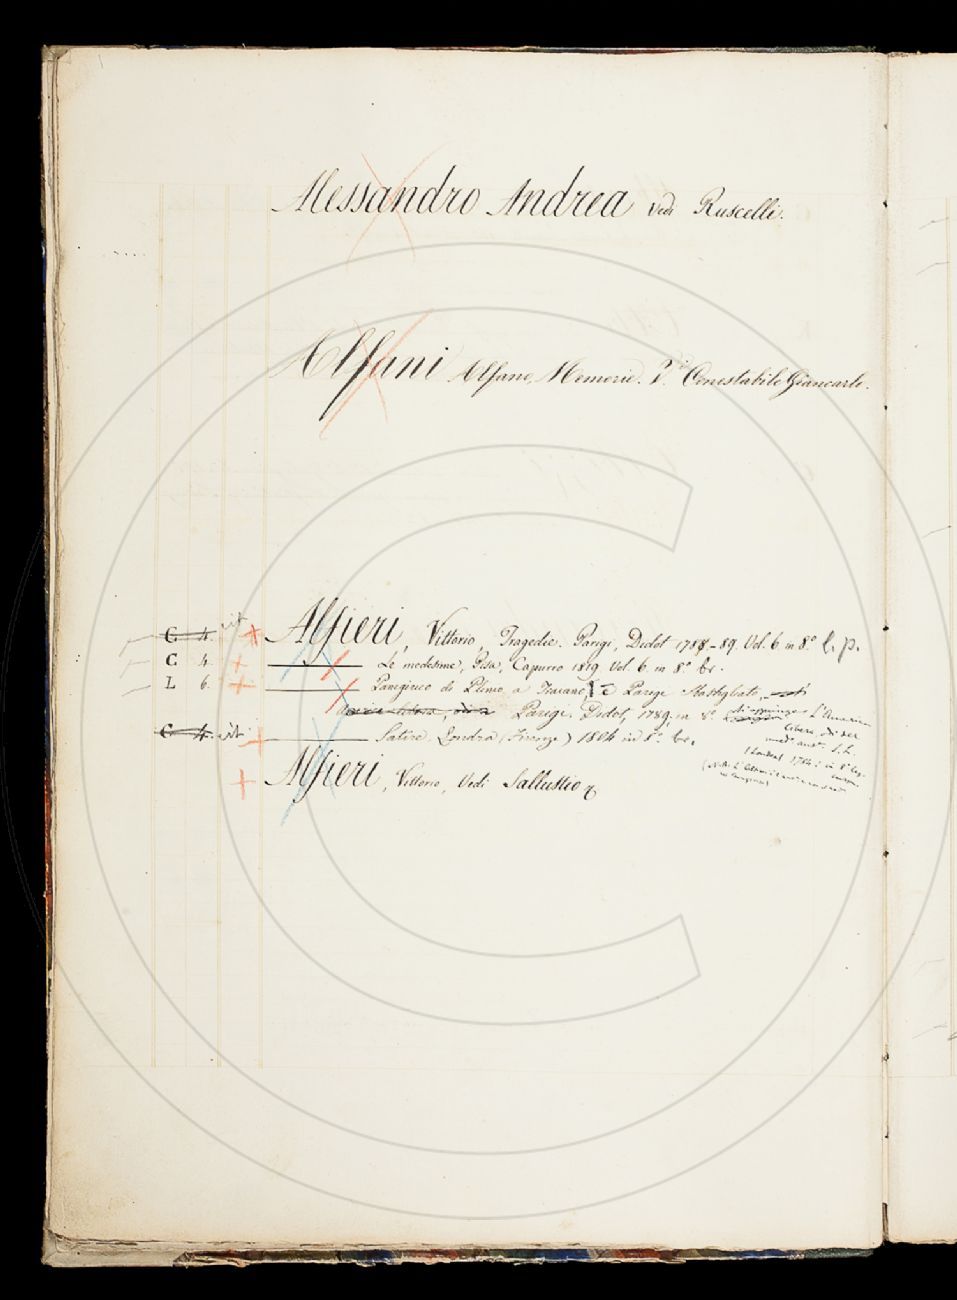 Alessandro Andrea vedi Ruscelli.
Alfani Alfano, Memorie. V. Conestabile Giancarlo.
C 4. vit + Alfieri, Vittorio, Tragedie. Parigi, Didot 1788-89. Vol. 6 in 8.° l. p.
C 4. + Le medesime, Pisa, Capurro 1819 Vol. 6 in 8.° br.
L 6. + Panegirico di Plinio a Traiano, e Parigi Sbastigliato,
Parigi. Didot, 1789, in 8.° si aggiunge L'America
libera, odi
C 4. vit. + Satire, Londra (Firenze) 1804 in 8.° br.
+ Alfieri, Vittorio, Vedi Sallustio